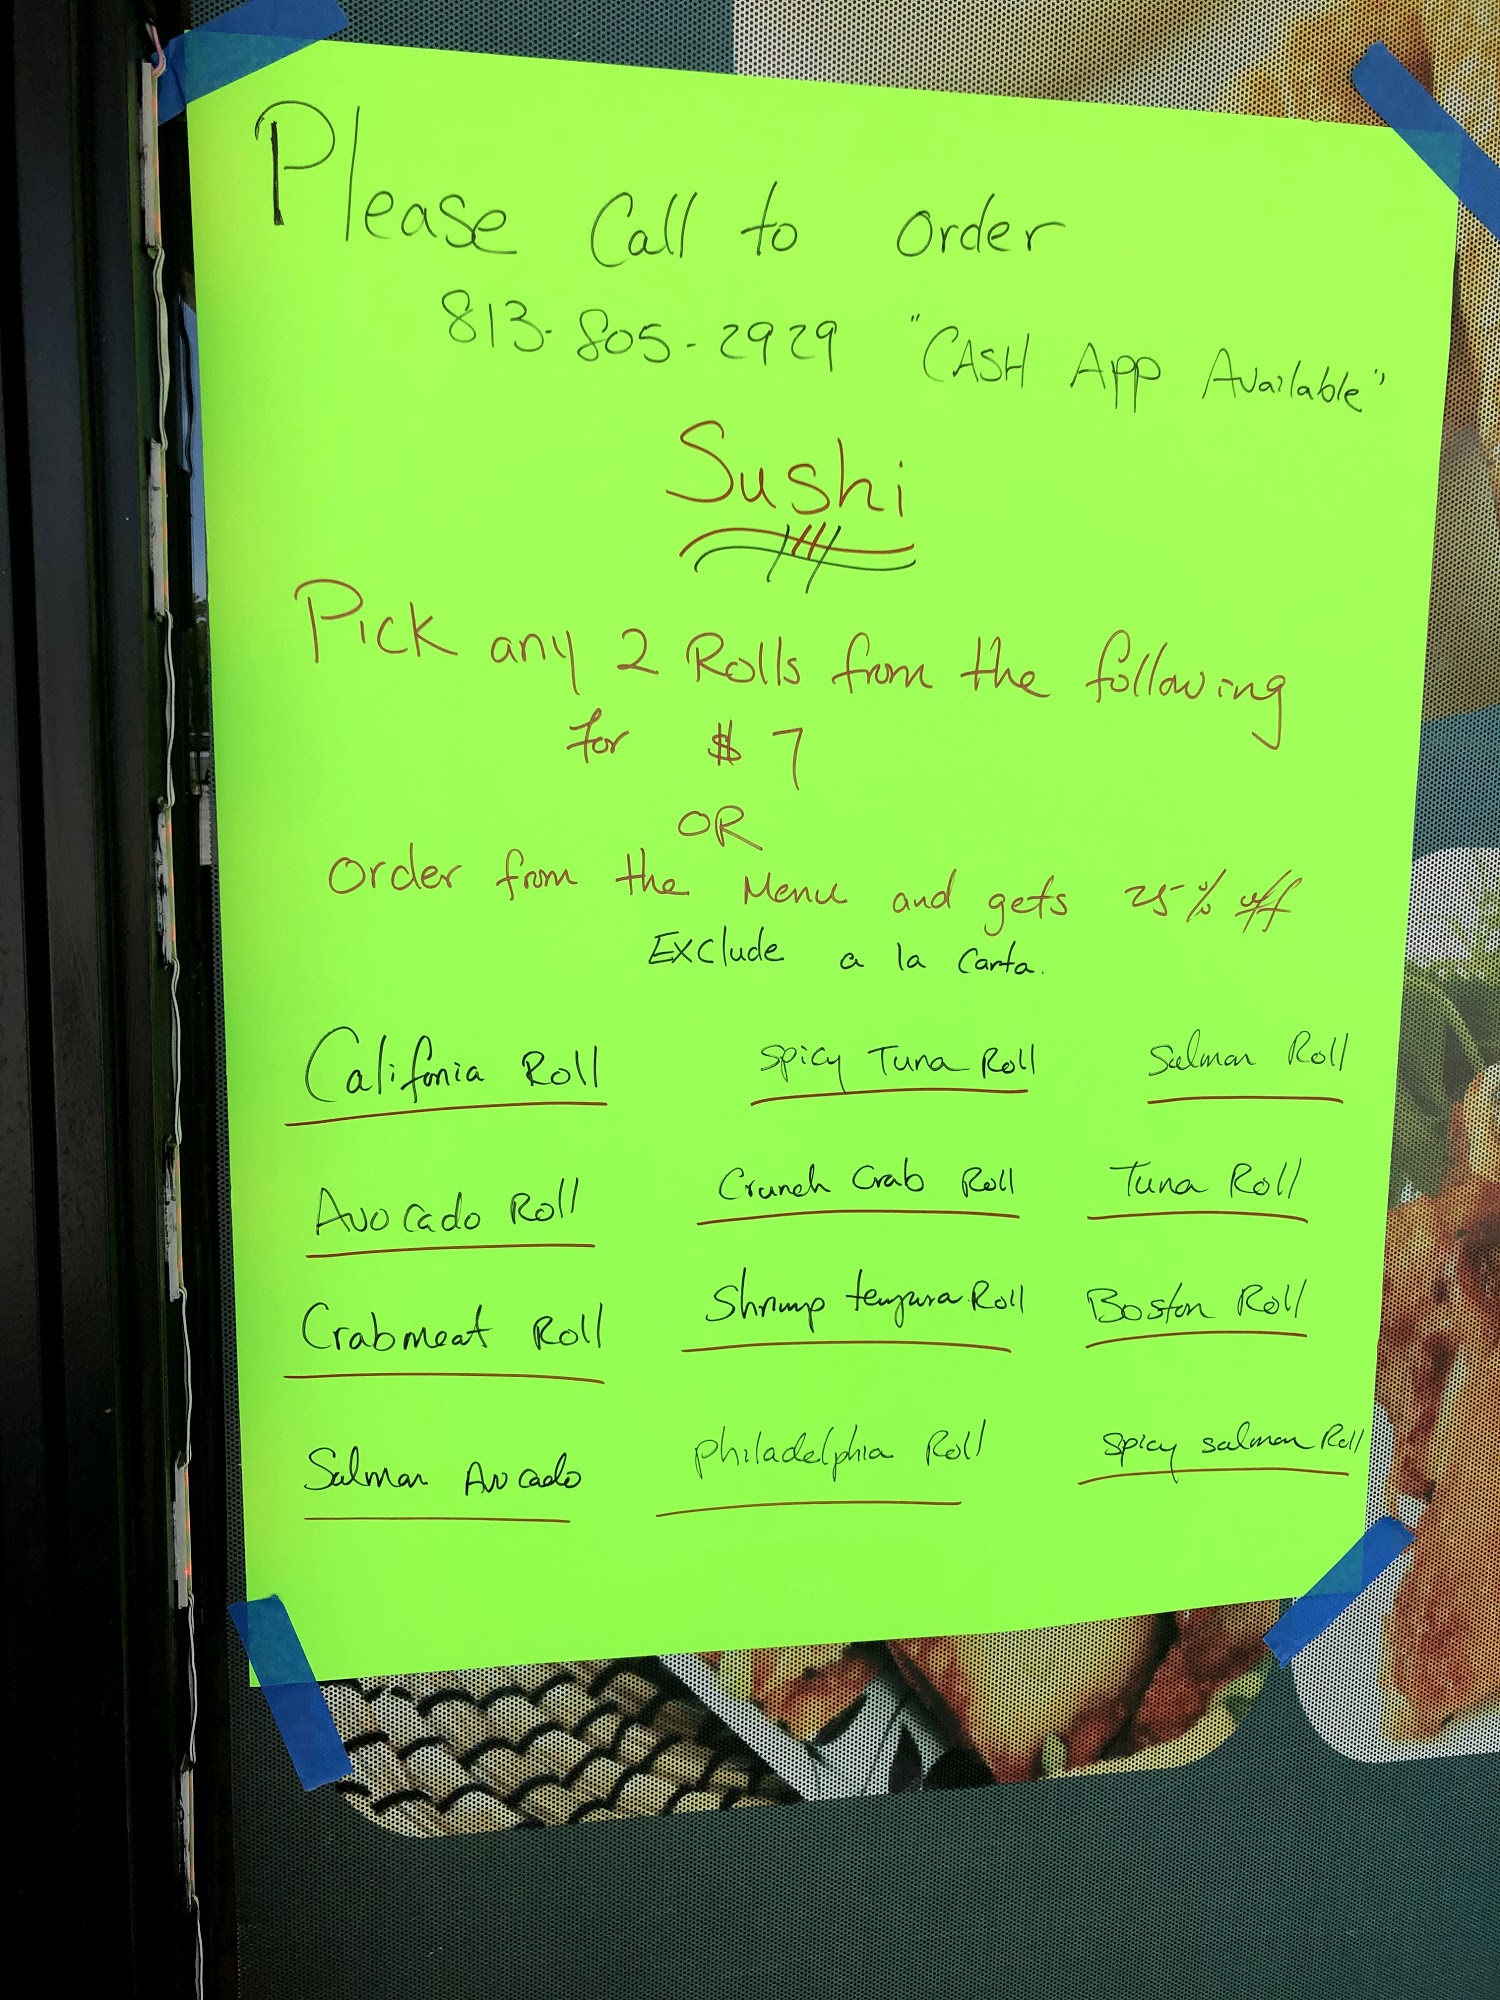 Please Call to order
813-805-2929 "CASH App Available"
Sushi
Pick any 2 Rolls from the following
for $7
OR
order from the Menu and gets 25% off
Exclude a la Carta.
Califonia Roll Spicy Tuna Roll Salmon Roll
Avocado Roll Crunch Crab Roll Tuna Roll
Crabmeat Roll Shrimp tempura Roll Boston Roll
Salmon Avocado Philadelphia Roll Spicy salmon Roll